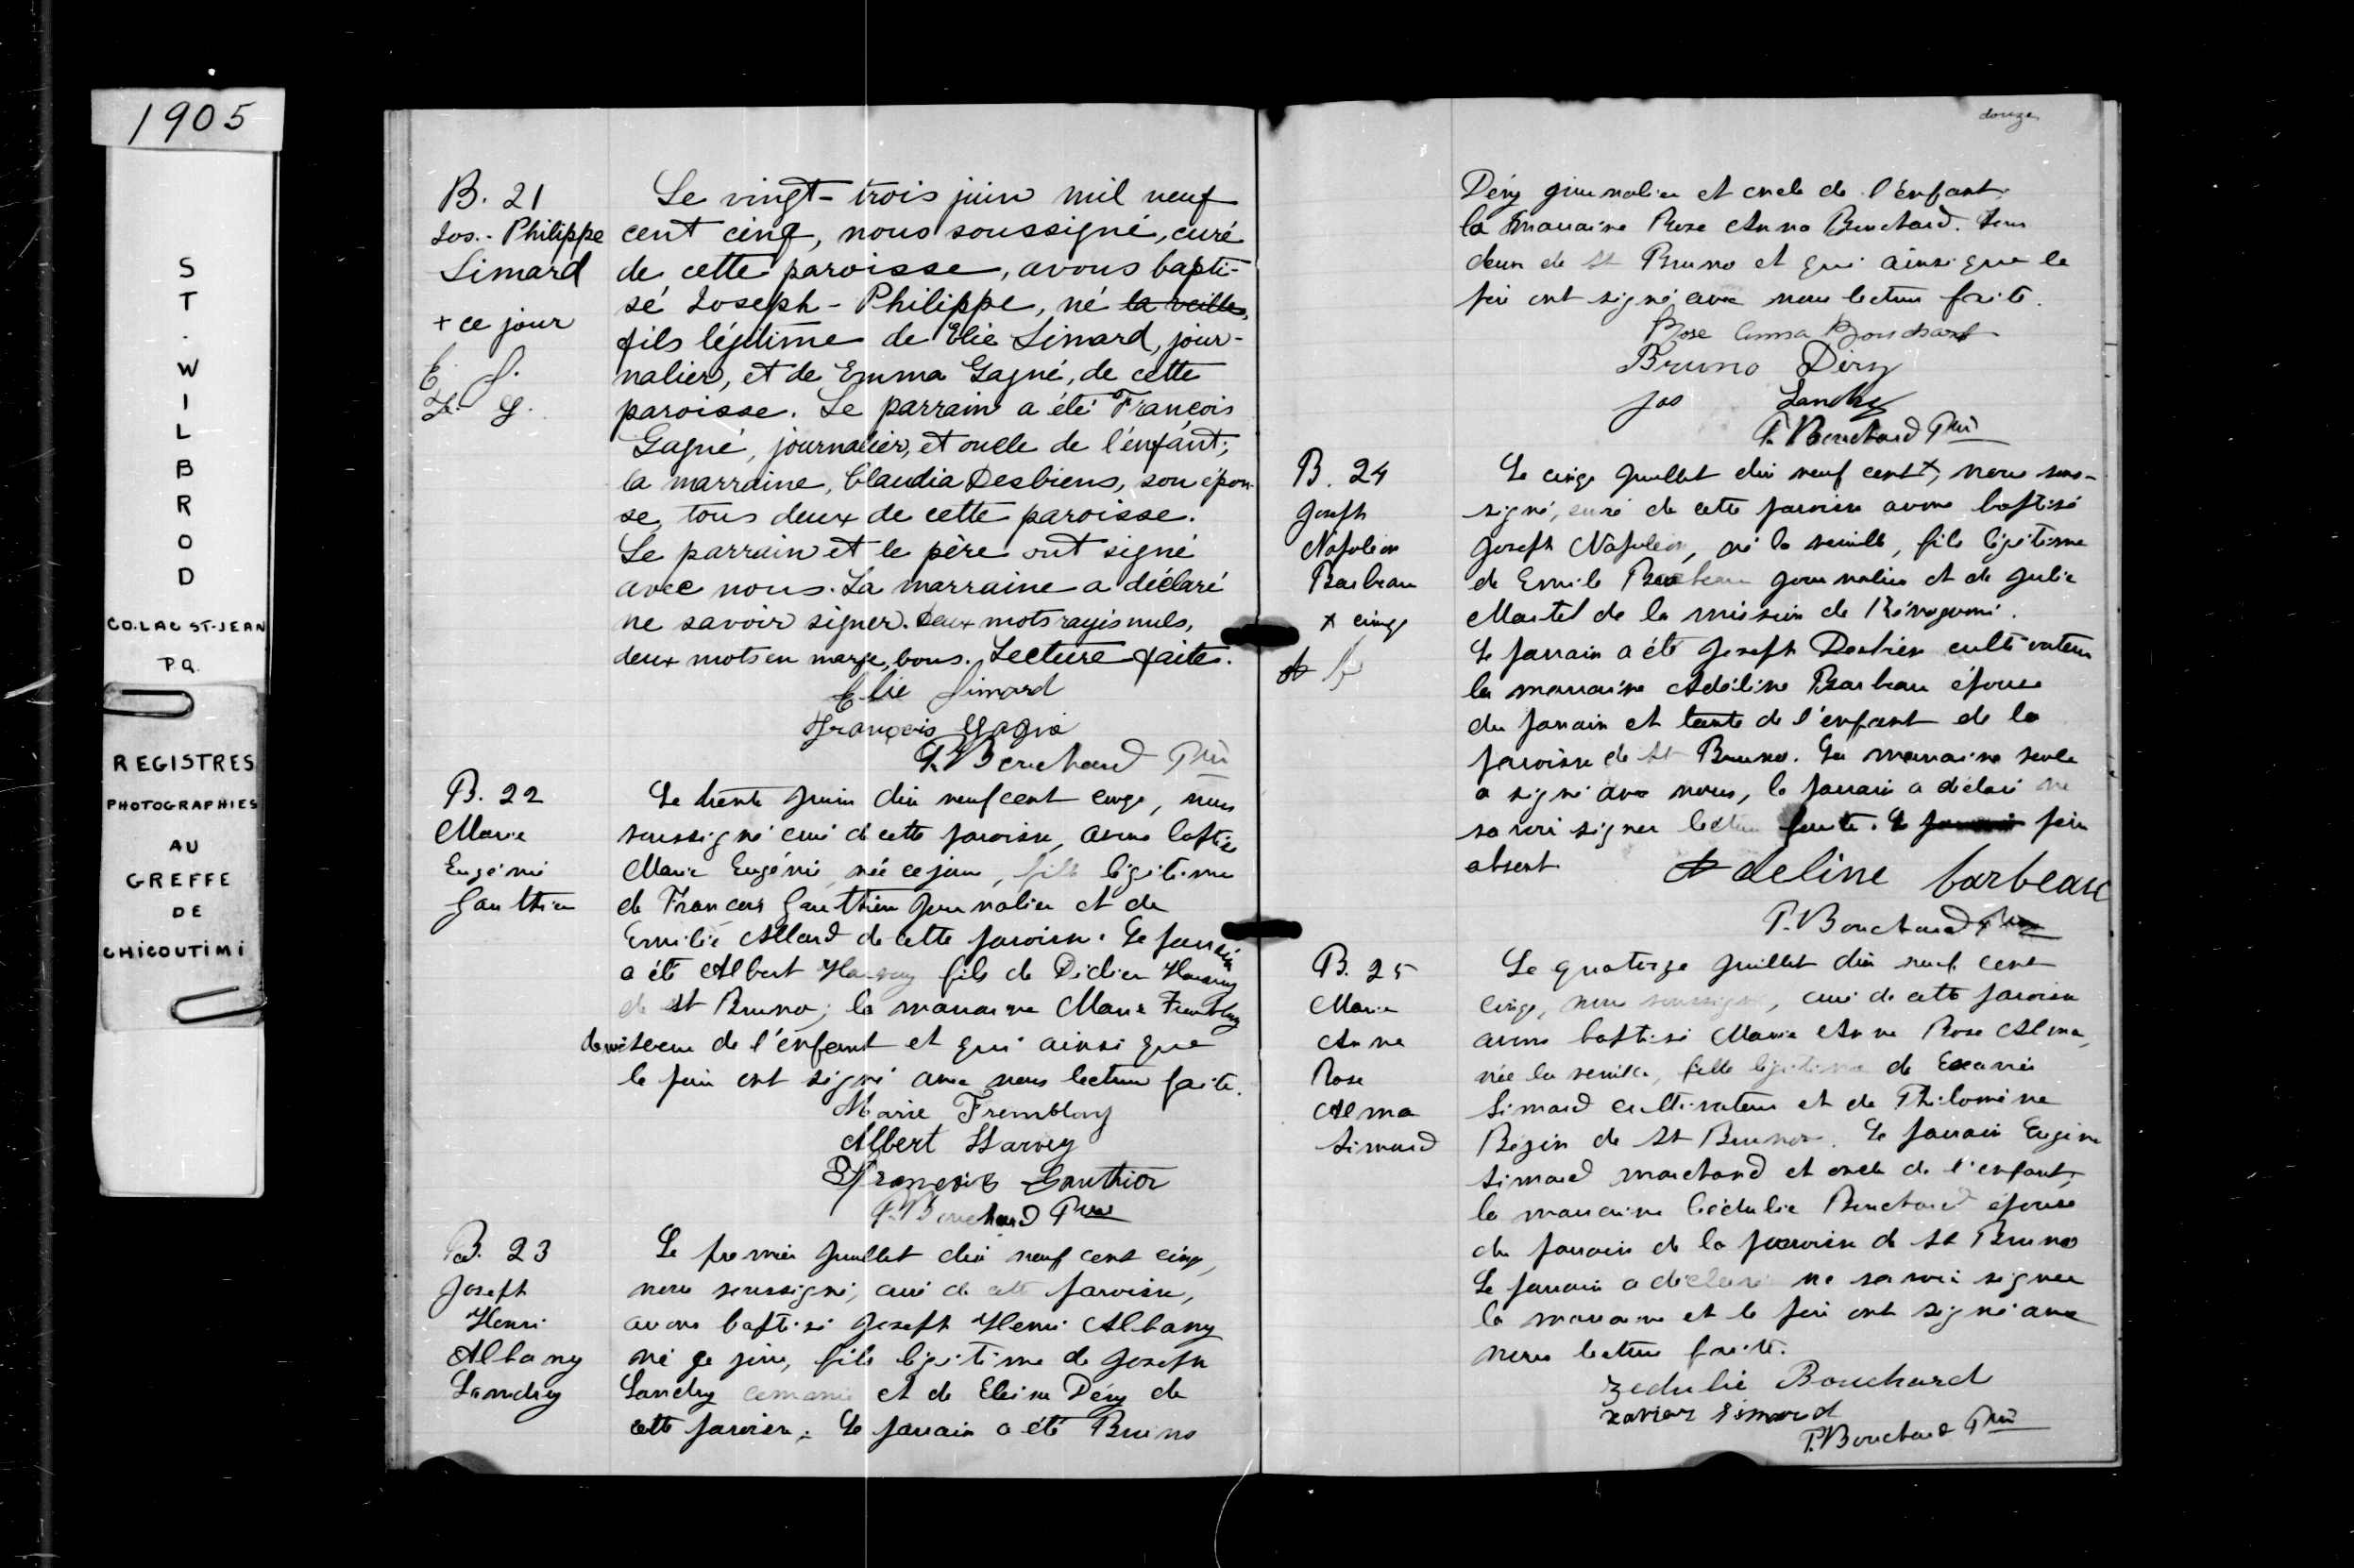 1905
ST. WILBROD
CO. LAC ST-JEAN
P.Q.
REGISTRES
PHOTOGRAPHIES
AU
GREFFE
DE
CHICOUTIMI
B. 21
Jos.- Philippe
Simard
+ ce jour
E. S.
F. G.
Le vingt-trois juin mil neuf
cent cinq, nous soussigné, curé
de cette paroisse, avons bapti-
sé Joseph-Philippe, né la veille,
fils légitime de Elie Simard, jour-
nalier, et de Emma Gagné, de cette
paroisse. Le parrain a été François
Gagné, journalier, et oncle de l'enfant;
la marraine, Claudia Desbiens, son épou-
se, tous deux de cette paroisse.
Le parrain et le père ont signé
avec nous. La marraine a déclaré
ne savoir signer. Deux mots rayés nuls,
deux mots en marge, bons. Lecture faite.
Elie Simard
François Gagné
P. Bouchard Ptre
B. 22
Marie
Eugénie
Gauthier
Le trente juin dix neuf cent cinq, nous
soussigné curé de cette paroisse, avons baptisé
Marie Eugénie, née ce jour, fille légitime
de François Gauthier journalier et de
Emilie Allard de cette paroisse. Le parrain
a été Albert Harvey fils de Didier Harvey
de St Bruno; la marraine Marie Tremblay
demi soeur de l'enfant et qui ainsi que
le père ont signé avec nous lecture faite.
Marie Tremblay
Albert Harvey
François Gauthier
P. Bouchard Ptre
B. 23
Joseph
Henri
Albany
Landry
Le premier juillet dix neuf cent cinq,
nous soussigné, curé de cette paroisse,
avons baptisé Joseph Henri Albany
né ce jour, fils légitime de Joseph
Landry et de Eléine Déry de
cette paroisse. Le parrain a été Bruno
douze
Déry journalier et oncle de l'enfant;
la marraine Rose Anna Bouchard. Tous
deux de St Bruno et qui ainsi que le
père ont signé avec nous lecture faite.
Rose Anna Bouchard
Bruno Déry
Jos Landry
P. Bouchard Ptre
B. 24
Joseph
Napoléon
Barbeau
x cinq
Le cinq juillet dix neuf cent x, nous sous-
signé, curé de cette paroisse avons baptisé
Joseph Napoléon, né la veille, fils légitime
de Emile Barbeau journalier et de Julie
Martel de la mission de Kénogami.
Le parrain a été Joseph Desbiens cultivateur
la marraine Adéline Barbeau épouse
du parrain et tante de l'enfant de la
paroisse de St Bruno. La marraine seule
a signé avec nous, le parrain a déclaré ne
savoir signer lecture faite. Le père
absent
Adeline barbeau
P. Bouchard Ptre
B. 25
Marie
Anna
Rose
Alma
Simard
Le quatorze juillet dix neuf cent
cinq, nous soussigné, curé de cette paroisse
avons baptisé Marie Anna Rose Alma,
née la veille, fille légitime de Exavier
Simard cultivateur et de Philomène
Bégin de St Bruno. Le parrain Eugène
Simard marchand et oncle de l'enfant;
la marraine Cédulie Bouchard épouse
du parrain de la paroisse de St Bruno
Le parrain a déclaré ne savoir signer
la marraine et le père ont signé avec
nous lecture faite.
Zedulie Bouchard
xavier Simard
P. Bouchard Ptre